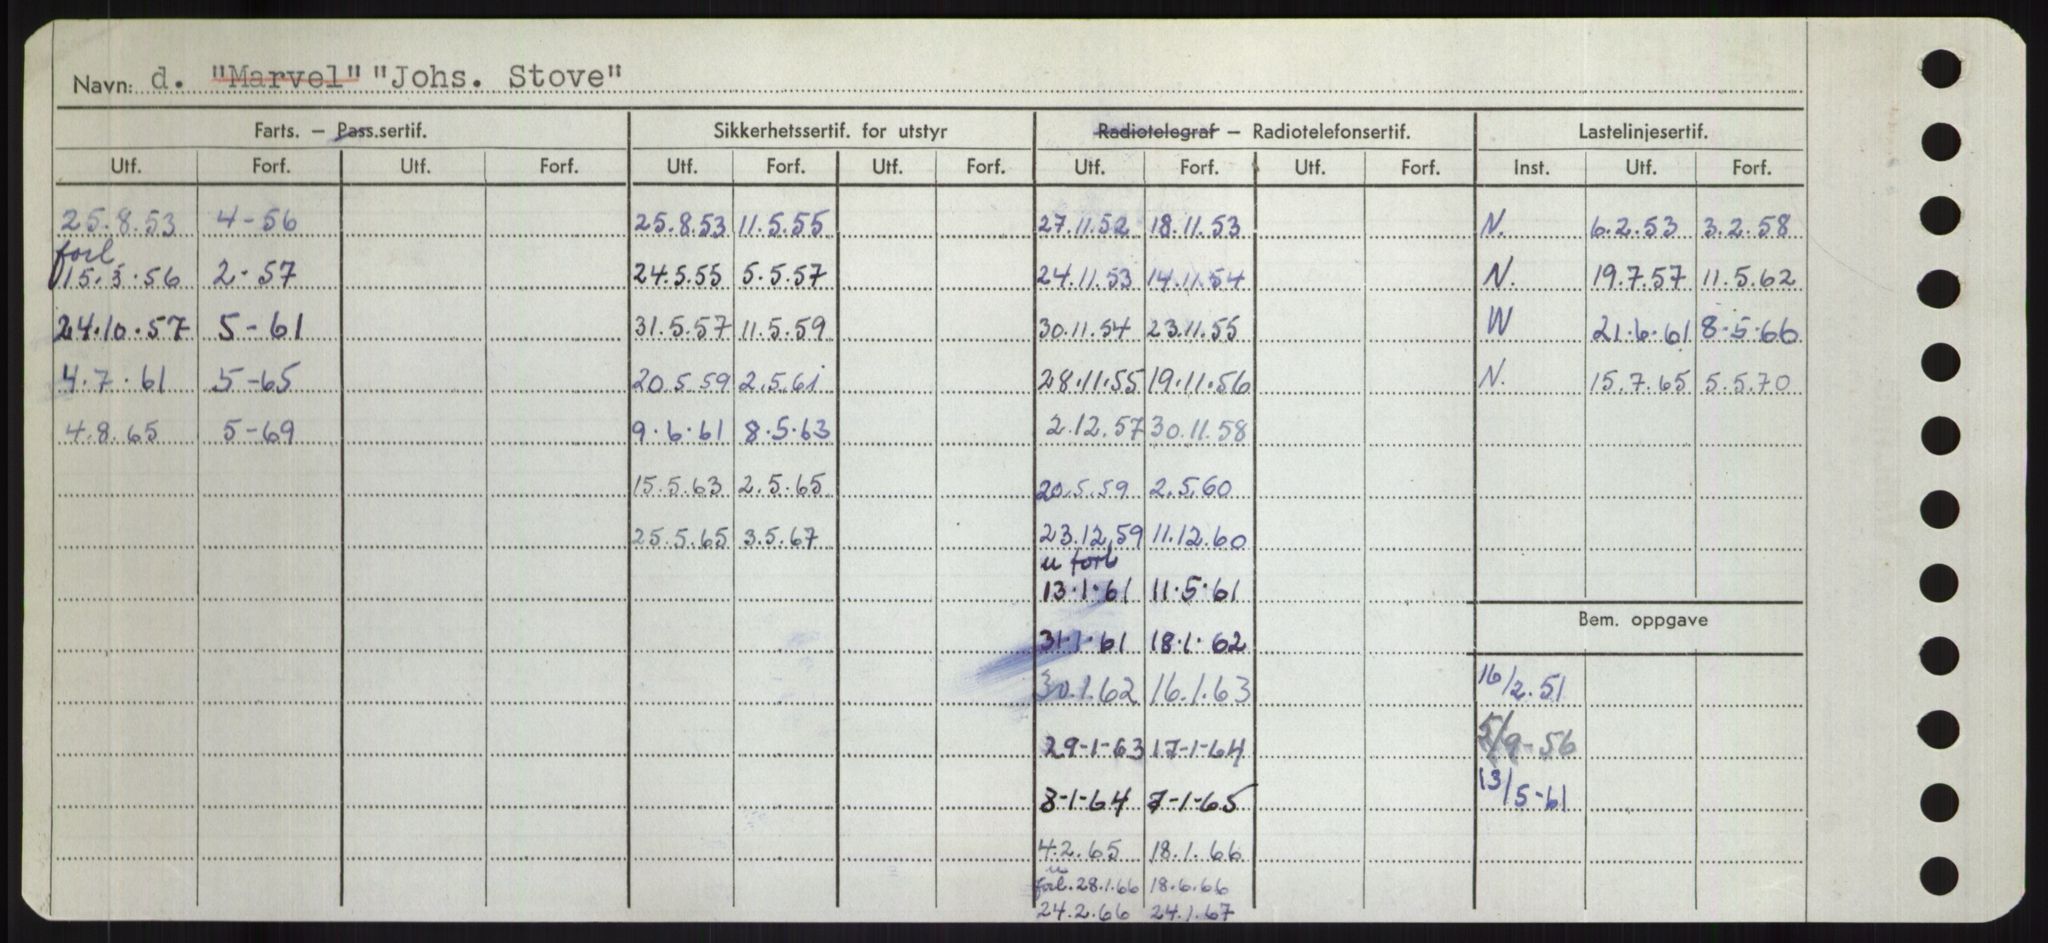 Navn: d. "Marvel" "Johs. Stove"
Farts. – Pass.sertif. Sikkerhetssertif. for utstyr Radiotelegraf – Radiotelefonsertif. Lastelinjesertif.
Utf. Forf. Utf. Forf. Utf. Forf. Utf. Forf. Utf. Forf. Utf. Forf. Inst. Utf. Forf.
25.8.53 4-56 25.8.53 11.5.55 27.11.52 18.11.53 N. 6.2.53 3.2.58
forl
15.3.56 2-57 24.5.55 5.5.57 24.11.53 14.11.54 N. 19.7.57 11.5.62
24.10.57 5-61 31.5.57 11.5.59 30.11.54 23.11.55 W 21.6.61 8.5.66
4.7.61 5-65 20.5.59 2.5.61 28.11.55 19.11.56 N. 15.7.65 5.5.70
4.8.65 5-69 9.6.61 8.5.63 2.12.57 30.11.58
15.5.63 2.5.65 20.5.59 2.5.60
25.5.65 3.5.67 23.12.59 11.12.60
u forl
13.1.61 11.5.61
Bem. oppgave
31.1.61 18.1.62
30.1.62 16.1.63 16/2.51
29-1-63 17-1-64 5/9-56
8-1-64 7-1-65 13/5-61
4.2.65 18.1.66
u
forl. 28.1.66 18.6.66
24.2.66 24.1.67